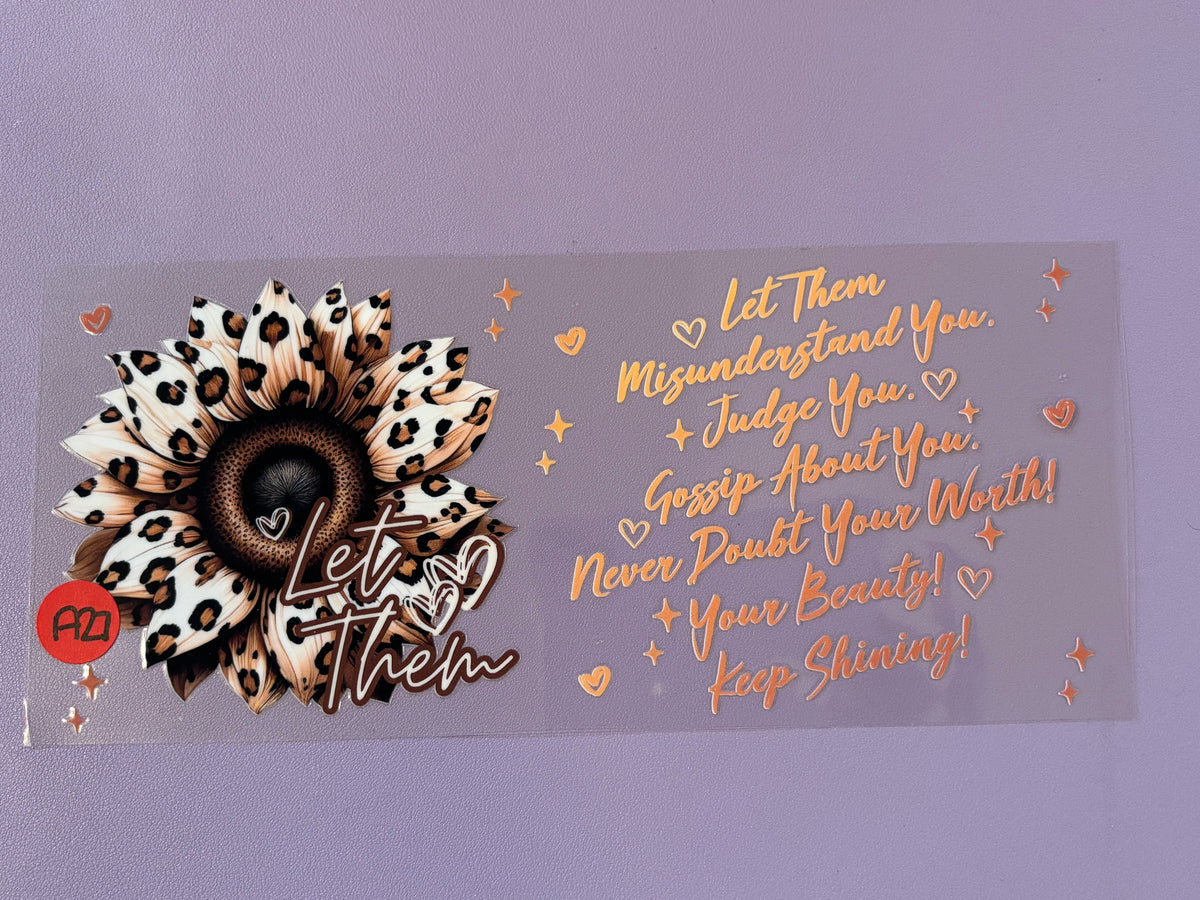 Let
Them
A27
Let Them
Misunderstand You.
Judge You.
Gossip About You.
Never Doubt Your Worth!
Your Beauty!
Keep Shining!